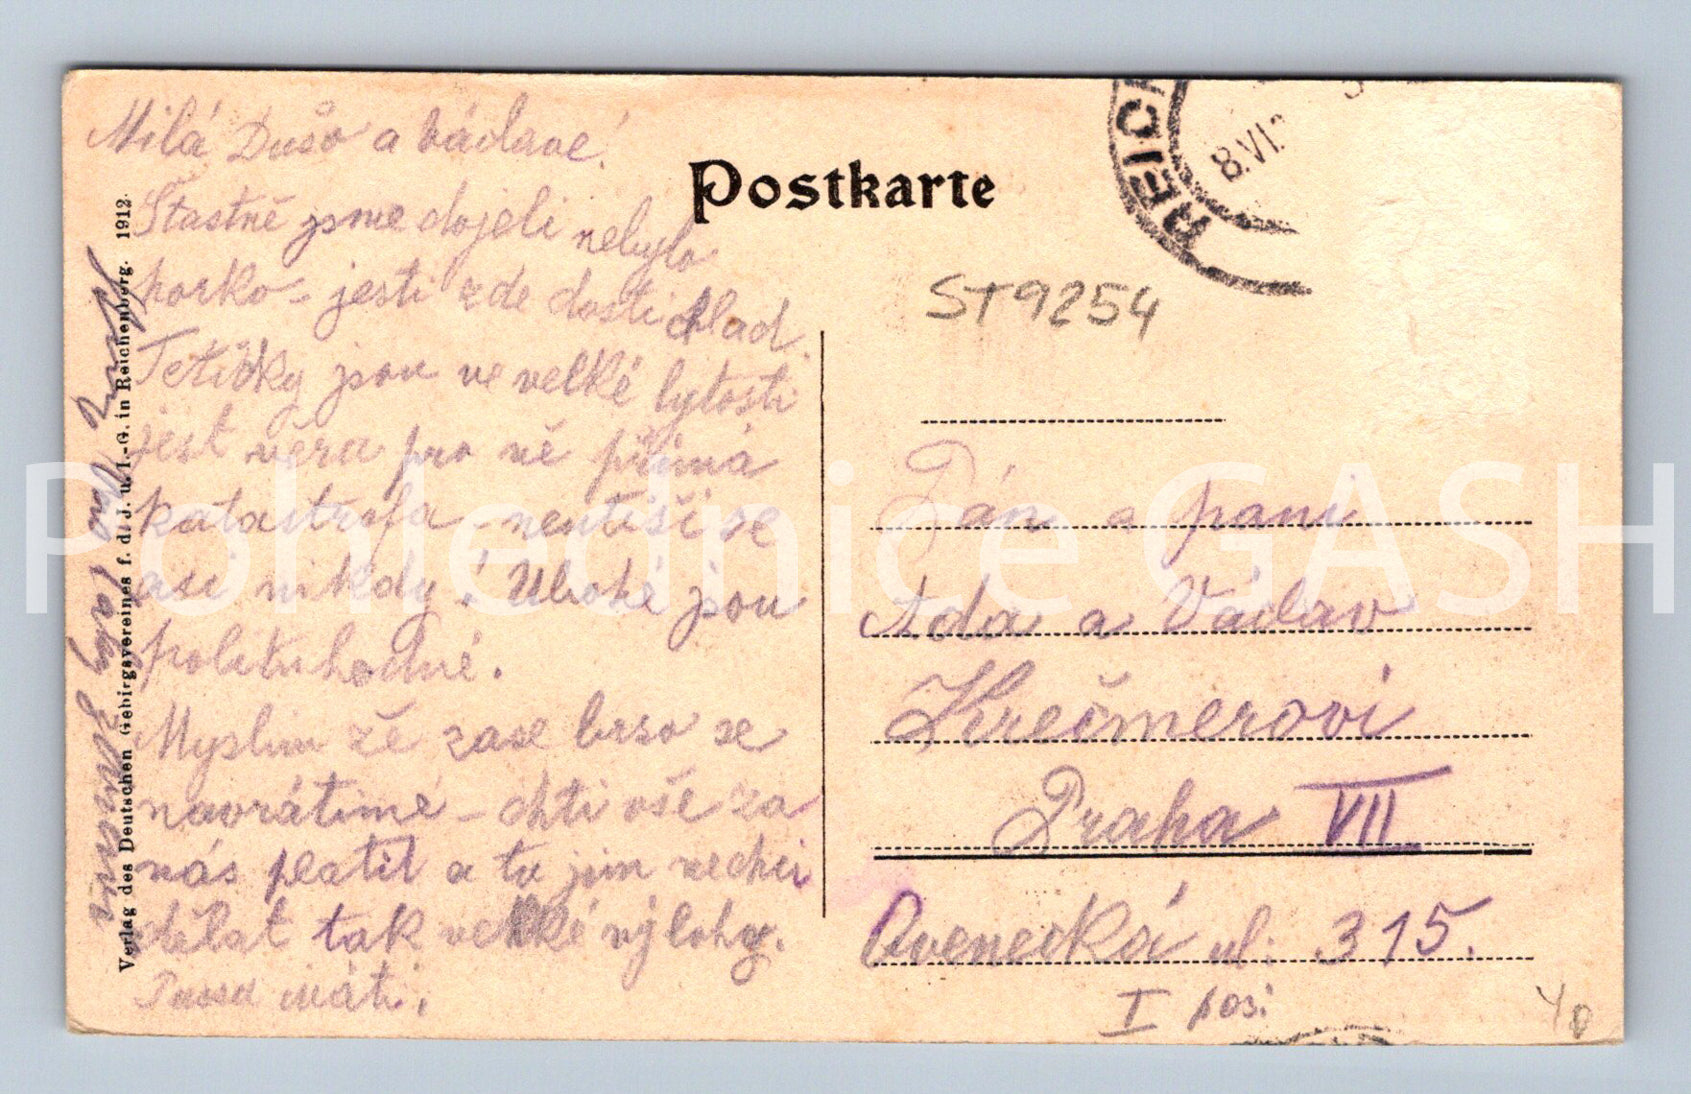 Milá Dušo a Václave!
Šťastně jsme dojeli nebylo
horko - jesti zde dosti chlad.
Tetičky jsou ve velké lytosti
jest věra pro ně přímá
katastrofa - neutiší se
asi nikdy! Ubohé jsou
politu hodné.
Myslim žě zase brso se
navrátimé - chti vše za
nás platit a tu jim nechci
dělat tak velkké výlohy.
Pusu máti.
Verlag des Deutschen Gebirgsvereines f. d. J. u. I.-G. in Reichenberg. 1912.
Postkarte
REICH
8.VI.
ST9254
Pán a pani
Ada a Václav
Krečmerovi
Praha VII
Ovenecká ul: 315.
I pos:
Pohlednice GASH